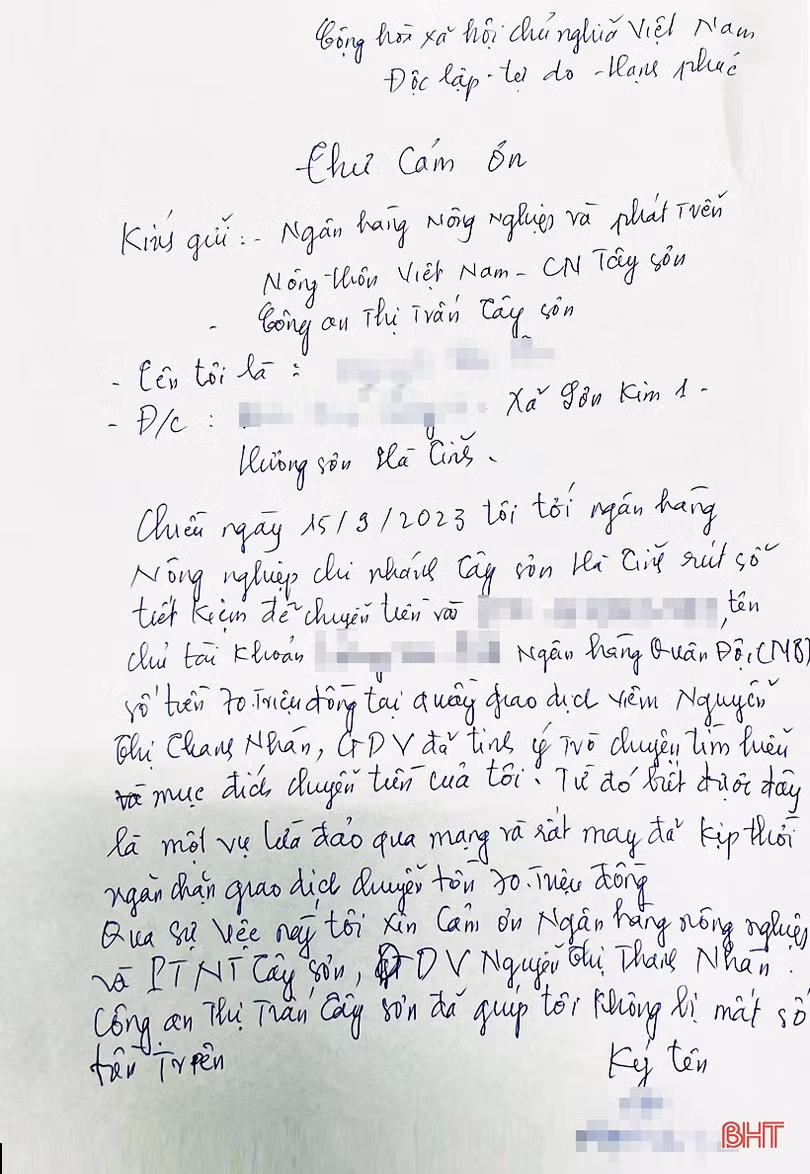 Cộng hoà xã hội chủ nghĩa Việt Nam
Độc lập - tự do - Hạnh phúc
Thư Cảm ơn
Kính gửi : - Ngân hàng Nông Nghiệp và phát Triển
Nông thôn Việt Nam - CN Tây Sơn
- Công an Thị Trấn Tây Sơn
- Tên tôi là :
- Đ/c : Xã Sơn Kim 1 -
Hương Sơn Hà Tĩnh .
Chiều ngày 15/9/2023 tôi tới ngân hàng
Nông nghiệp chi nhánh Tây Sơn Hà Tĩnh rút sổ
tiết kiệm để chuyển tiền vào , tên
chủ tài khoản Ngân hàng Quân Đội (MB)
số tiền 70.Triệu đồng tại quầy giao dịch viêm Nguyễn
Thị Thanh Nhàn, GDV đã tinh ý trò chuyện tìm hiểu
và mục đích chuyển tiền của tôi . Từ đó biết được đây
là một vụ lừa đảo qua mạng và rất may đã kịp thời
ngăn chặn giao dịch chuyển tiền 70.Triệu đồng
Qua sự việc này tôi xin Cảm ơn Ngân hàng nông nghiệp
và PTNT Tây Sơn, GDV Nguyễn Thị Thanh Nhàn .
Công an Thị Trấn Tây Sơn đã giúp tôi không bị mất số
tiền Trên
Ký tên
BHT